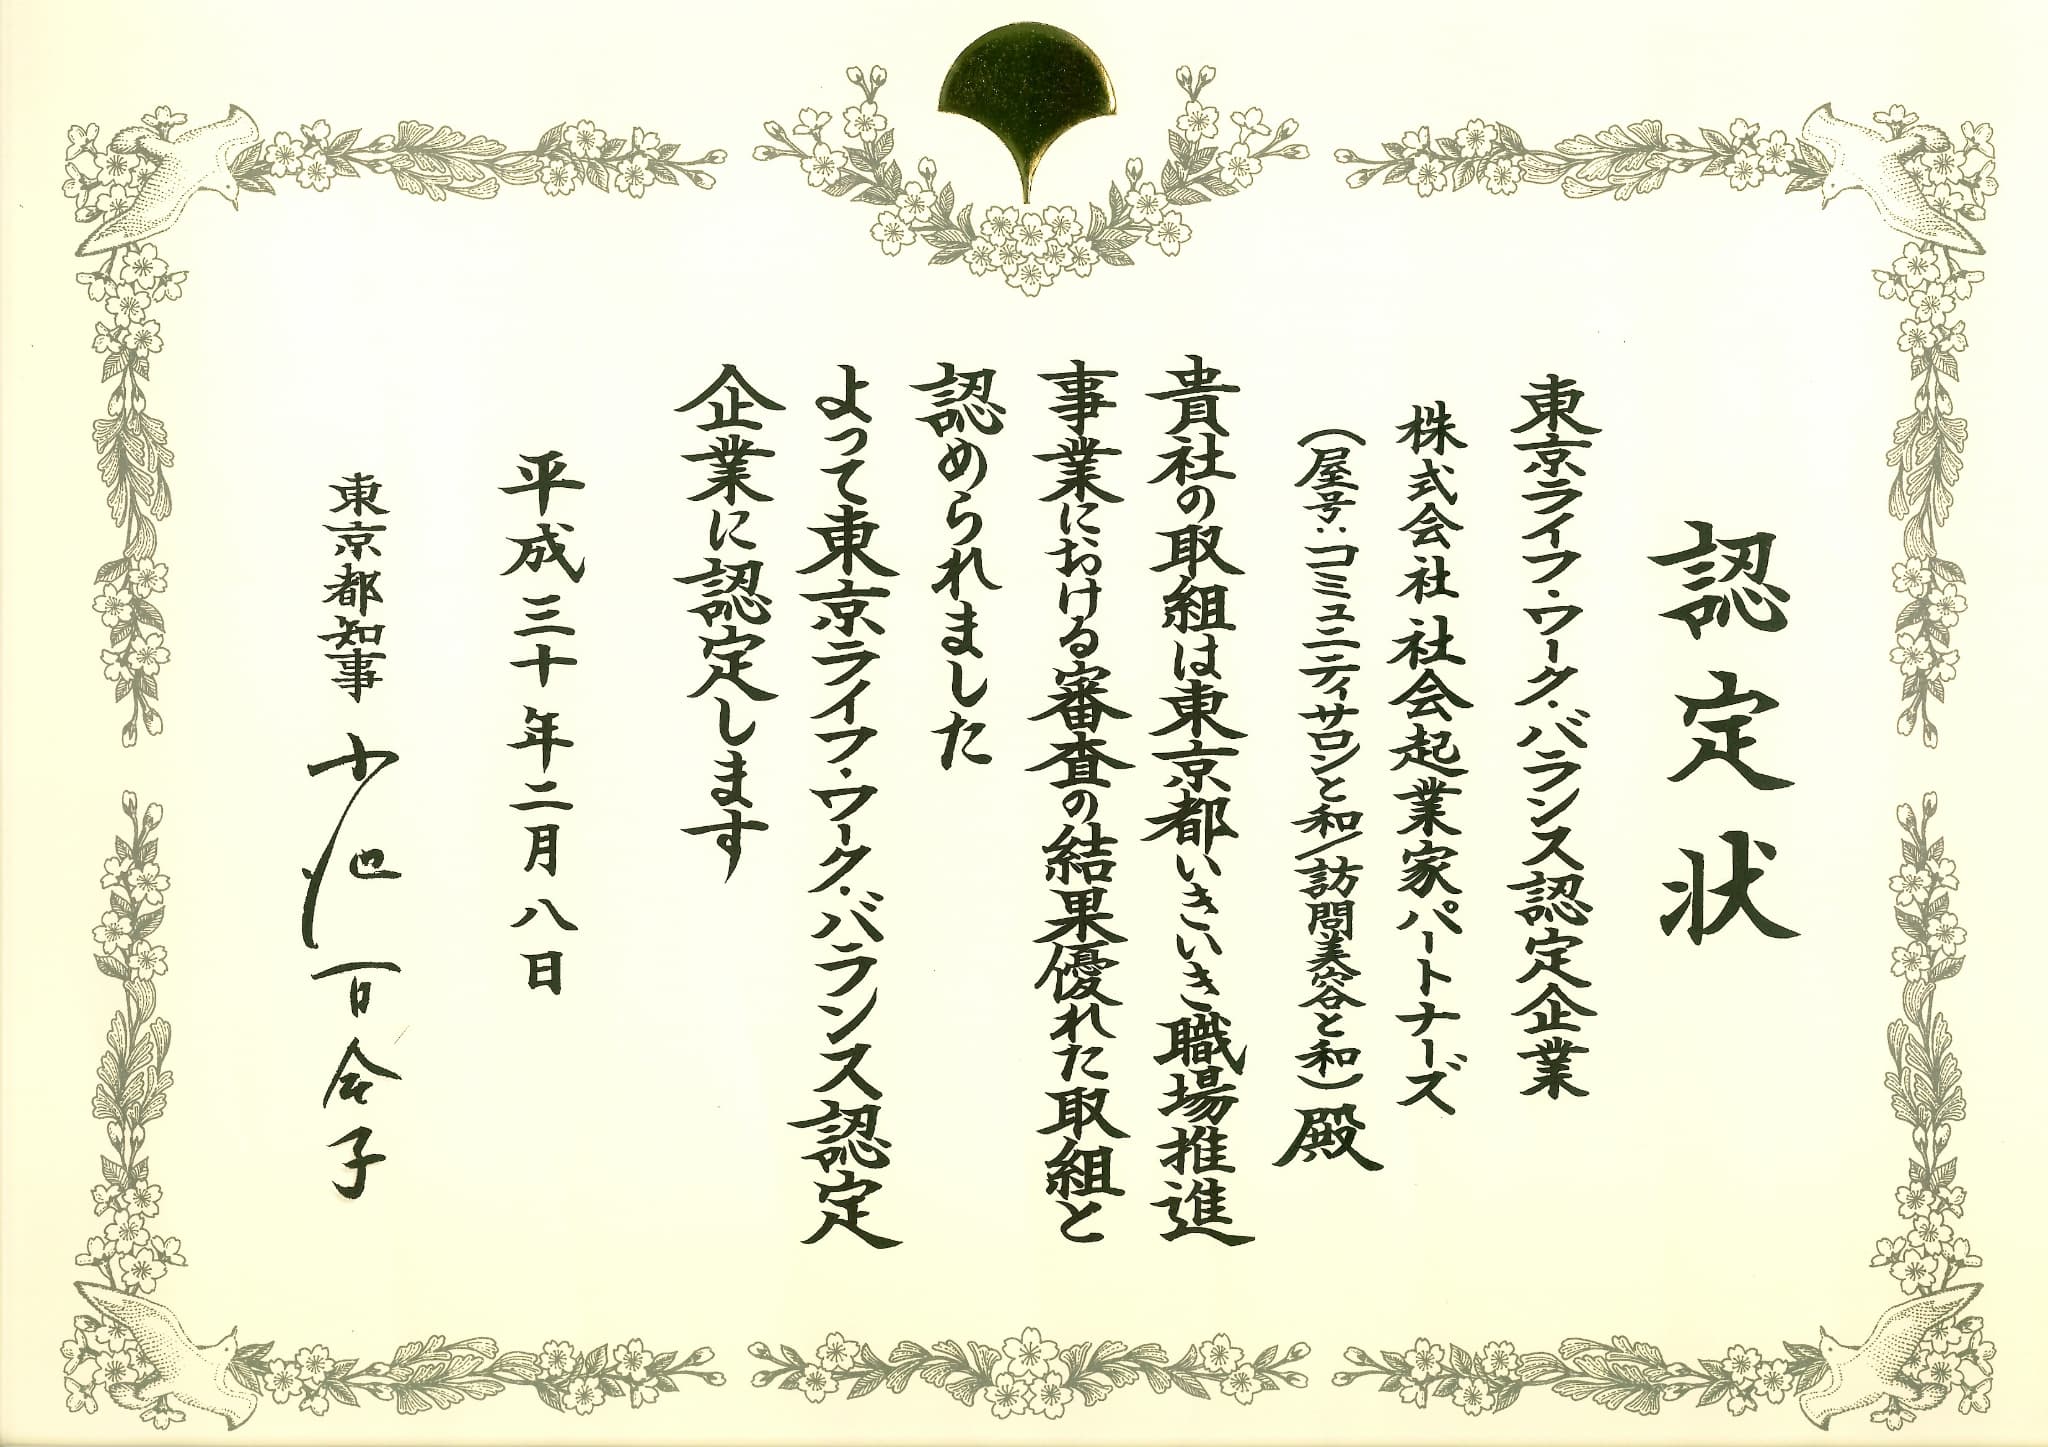 認定状
東京ライフ・ワーク・バランス認定企業
株式会社社会起業家パートナーズ
（屋号：コミュニティサロンと和／訪問美容と和）殿
貴社の取組は東京都いきいき職場推進
事業における審査の結果優れた取組と
認められました
よって東京ライフ・ワーク・バランス認定
企業に認定します
平成三十年二月八日
東京都知事 小池百合子